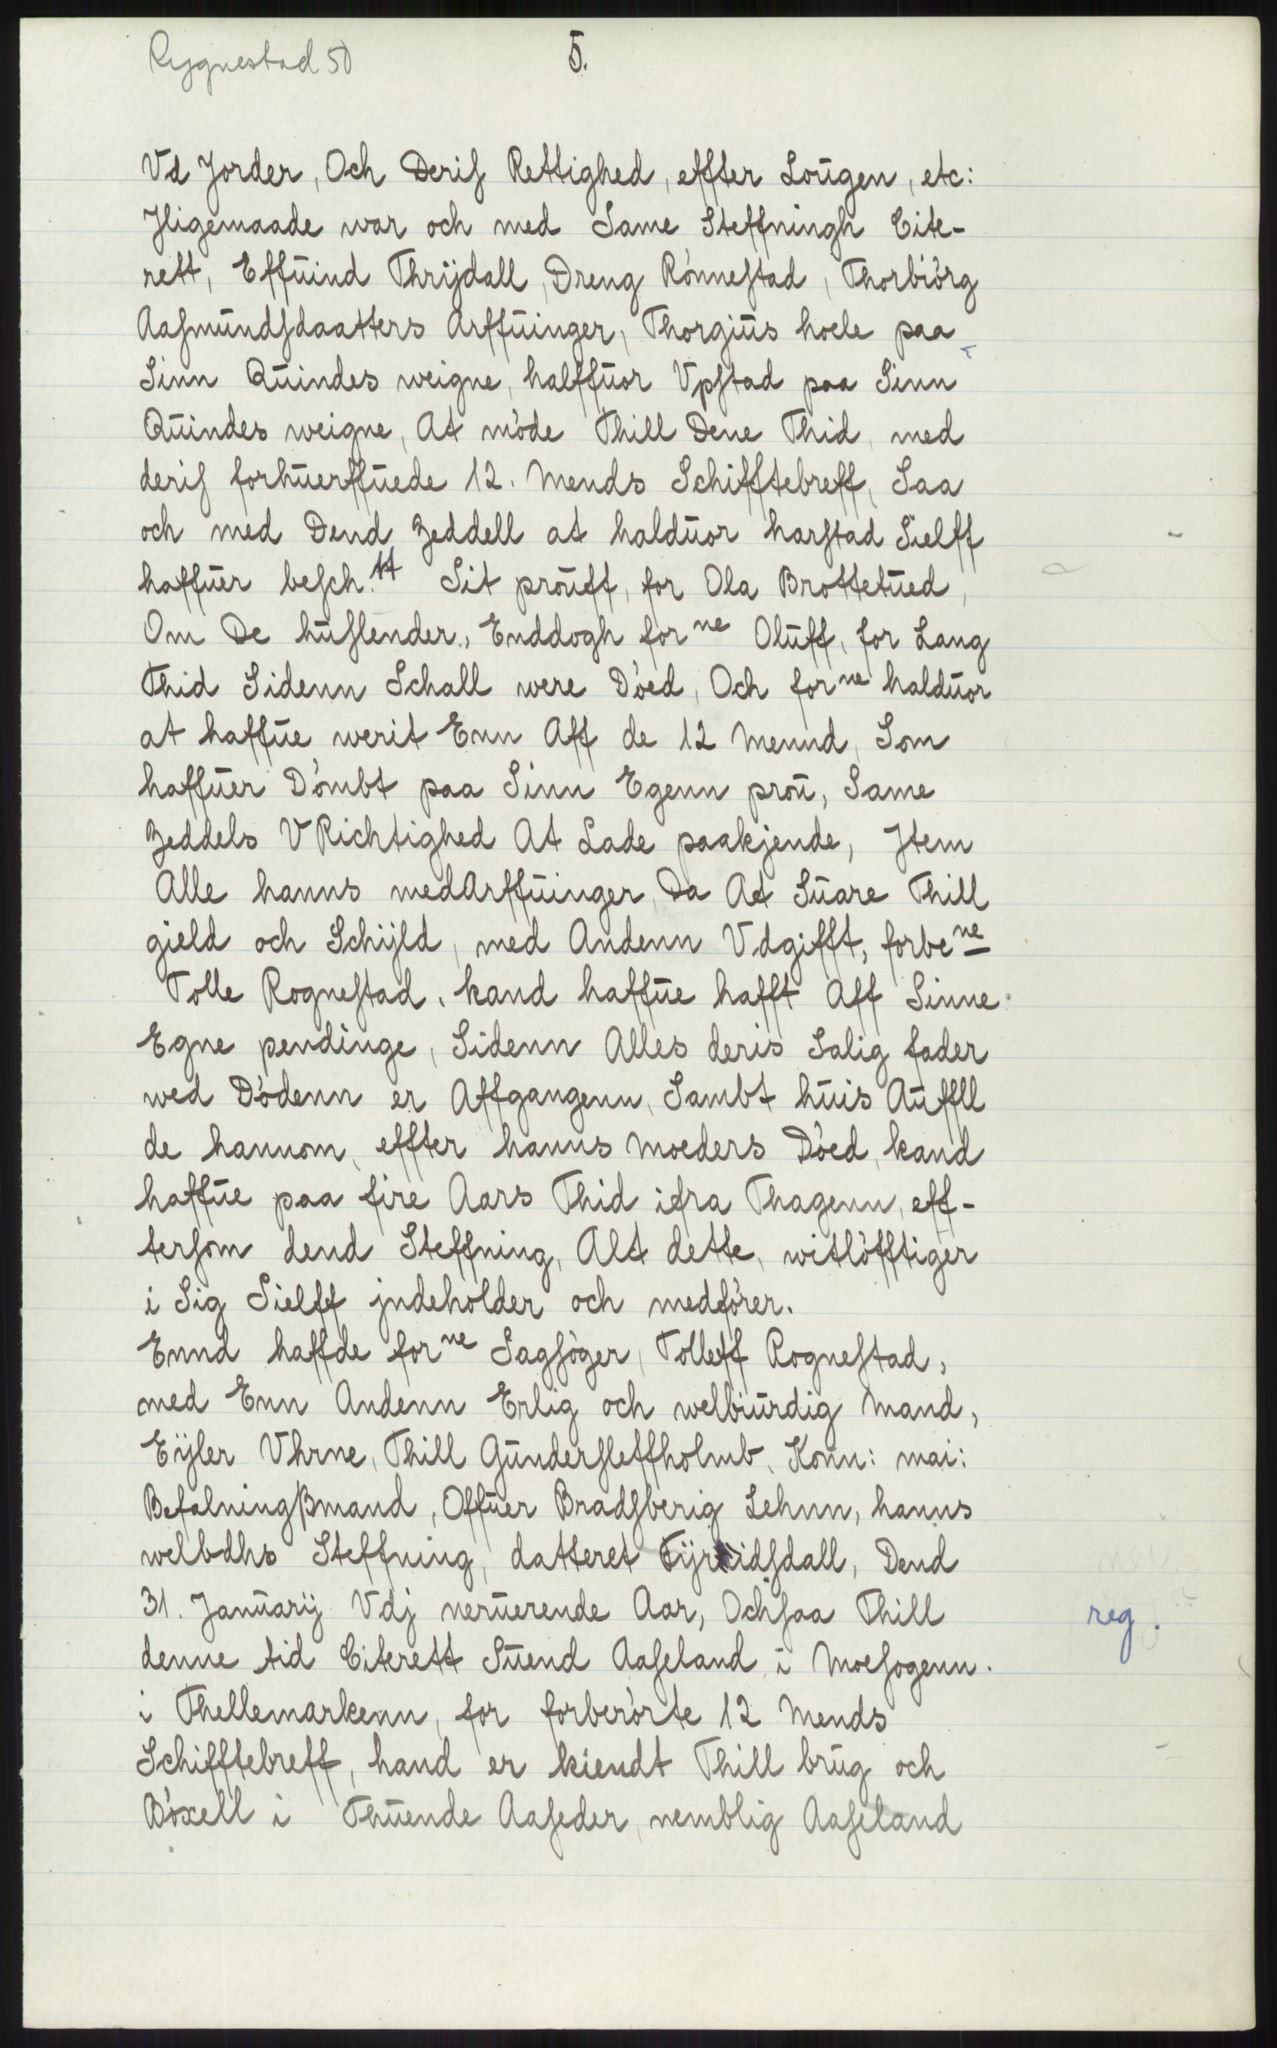 Rygnestad 50
5.
Vd Jorder, Och Deriſ Rettighed, effter Loūgen, etc:
Jligemaade war och med Same Steffningh Cite-
rett, Effūind Thrÿdall, Dreng Rónneſtad, Thorbiórg
Aaſmūndſdaatters Arffūinger, Thorgiūs hoele paa
Sinn Qūindes weigne, halffūor Vpſtad paa Sinn
Qūindes weigne, At móde Thill Dene Thid, med
deriſ forhūerffūede 12. Mends Schifftebreff, Saa
och med Dend Zeddell at haldūor harſtad Sielff
haffūer beſch. tt Sit proūff, for Ola Brottetūed,
Om De hūſlender., Enddogh for ne Olūff, for Lang
Thid Sidenn Schall were Dóed, Och for ne haldūor
at haffūe werit Enn Aff de 12 Mennd, Som
haffūer Dómbt paa Sinn Egenn proū, Same
Zeddels V Richtighed At Lade paakjende, Jtem
Alle hanns medArffūinger, Da At Sūare Thill
gield och Schÿld, med Andenn Vdgifft, forbe ne
Tolle Rogneſtad, kand haffūe hafft Aff Sinne
Egne pendinge, Sidenn Alles deris Salig fader
wed Dódenn er Affgangenn, Sambt hūis Aūffll
de hannom, effter hanns Moeders Dóed, kand
haffūe paa fire Aars Thid ifra Thagenn, eff-
terſom dend Steffning, Alt dette, witlófftiger
i Sig Sielff jndeholder och medfórer.
Ennd haffde for ne Sagſóger, Tolleff Rogneſtad,
med Enn Andenn Erlig och welbiūrdig Mand,
Eÿler Vhrne, Thill Gūnderſleffholmb, Konn: mai:
Befalningßmand, Offūer Bradſberig Lehnn, hanns
welbdhs Steffning, datteret idſdall, Dend
31. Janūarÿ Vdj nerūerende Aar, Ochſaa Thill
reg.
denne tid Citerett Sūend Aaſeland i Moeſogenn
i Thellemarkenn, for forberórte 12 Mends
Schifftebreff, hand er kiendt Thill brūg och
Bóxell i Thūende Aaſeder, nemblig Aaſeland